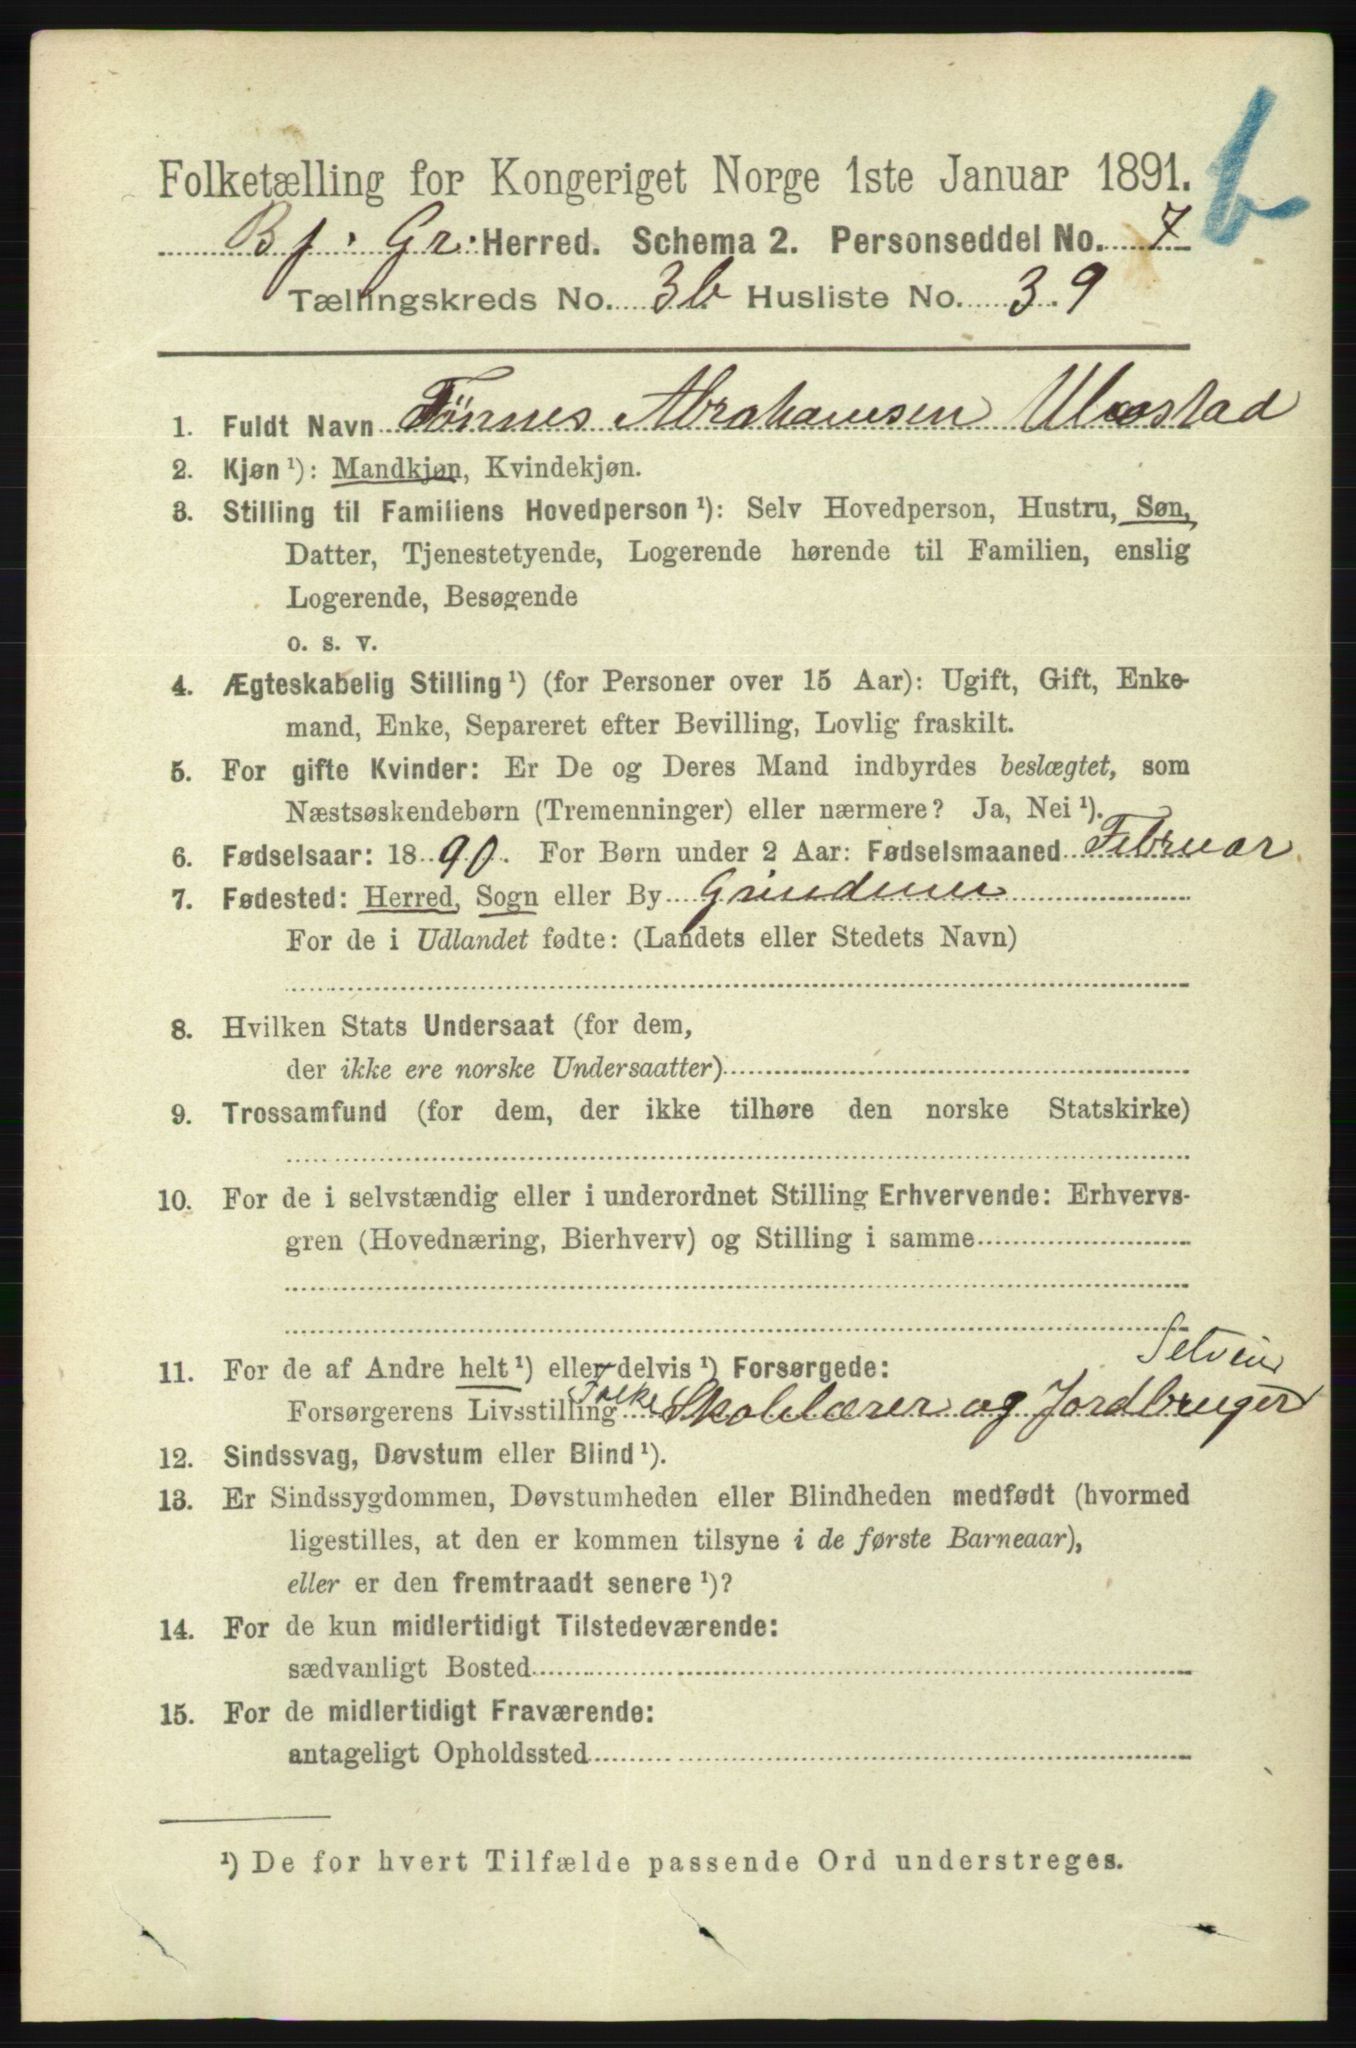 b
Folketælling for Kongeriget Norge 1ste Januar 1891.
Bj. Gr: Herred. Schema 2. Personseddel No. 7
Tællingskreds No. 3b Husliste No. 39
1. Fuldt Navn Tønnes Abrahamsen Ulæstad
2. Kjøn ¹): Mandkjøn, Kvindekjøn.
3. Stilling til Familiens Hovedperson ¹): Selv Hovedperson, Hustru, Søn,
Datter, Tjenestetyende, Logerende hørende til Familien, enslig
Logerende, Besøgende
o. s. v.
4. Ægteskabelig Stilling ¹) (for Personer over 15 Aar): Ugift, Gift, Enke-
mand, Enke, Separeret efter Bevilling, Lovlig fraskilt.
5. For gifte Kvinder: Er De og Deres Mand indbyrdes beslægtet, som
Næstsøskendebørn (Tremenninger) eller nærmere? Ja, Nei ¹).
6. Fødselsaar: 1890. For Børn under 2 Aar: Fødselsmaaned Februar
7. Fødested: Herred, Sogn eller By Grindum
For de i Udlandet fødte: (Landets eller Stedets Navn)
8. Hvilken Stats Undersaat (for dem,
der ikke ere norske Undersaatter)
9. Trossamfund (for dem, der ikke tilhøre den norske Statskirke)
10. For de i selvstændig eller i underordnet Stilling Erhvervende: Erhvervs-
gren (Hovednæring, Bierhverv) og Stilling i samme
11. For de af Andre helt ¹) eller delvis ¹) Forsørgede: Selveier
Forsørgerens Livsstilling Folke Skolelærer og Jordbruger
12. Sindssvag, Døvstum eller Blind ¹).
13. Er Sindssygdommen, Døvstumheden eller Blindheden medfødt (hvormed
ligestilles, at den er kommen tilsyne i de første Barneaar),
eller er den fremtraadt senere ¹)?
14. For de kun midlertidigt Tilstedeværende:
sædvanligt Bosted
15. For de midlertidigt Fraværende:
antageligt Opholdssted
¹) De for hvert Tilfælde passende Ord understreges.